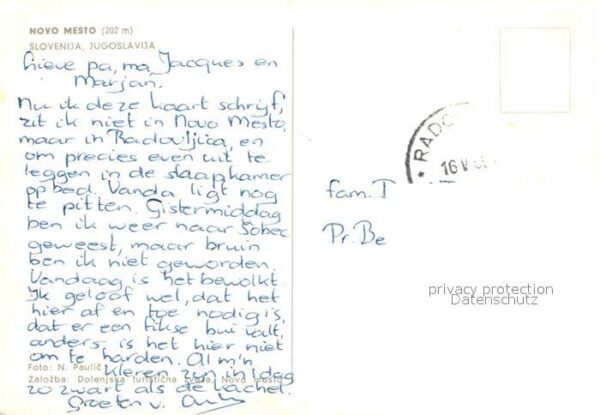 NOVO MESTO (202 m)
SLOVENIJA, JUGOSLAVIJA
Lieve pa, ma, Jacques en
Marjan.
Nu ik deze kaart schrijf,
zit ik niet in Novo Mesto,
maar in Radovljica, en
om precies even uit te
leggen in de slaapkamer
op bed. Vanda ligt nog
te pitten. Gistermiddag
ben ik weer naar Šobec
geweest, maar bruin
ben ik niet geworden.
Vandaag is het bewolkt.
Ik geloof wel, dat het
hier af en toe nodig is,
dat er een fikse bui valt,
anders is het hier niet
om te harden. Al m'n
kleren zijn in 1 dag
zo zwart als de kachel.
Groeten v.
Foto: N. Paulič
Založba: Dolenjska turistična zveza, Novo mesto
RADO
16 V
fam. T
Pr. Be
privacy protection
Datenschutz